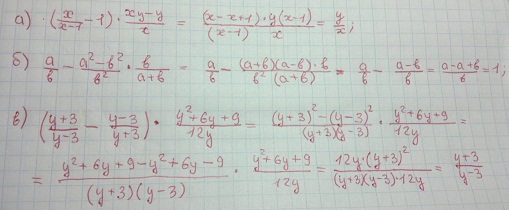 а) (x/(x-1) - 1) · (xy-y)/x = ((x-x+1)·y(x-1))/((x-1) x) = y/x;
б) a/b - (a²-b²)/b² · b/(a+b) = a/b - ((a+b)(a-b)·b)/(b²(a+b)) = a/b - (a-b)/b = (a-a+b)/b = 1;
в) ((y+3)/(y-3) - (y-3)/(y+3)) · (y²+6y+9)/(12y) = ((y+3)²-(y-3)²)/((y+3)(y-3)) · (y²+6y+9)/(12y) =
= (y²+6y+9-y²+6y-9)/((y+3)(y-3)) · (y²+6y+9)/(12y) = (12y·(y+3)²)/((y+3)(y-3)·12y) = (y+3)/(y-3)